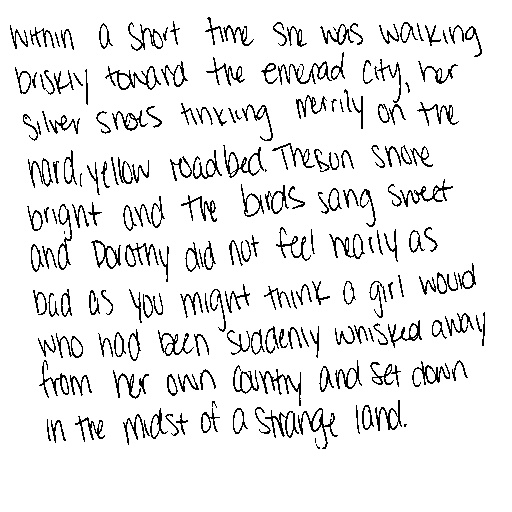 Within a short time she was walking
briskly toward the emerald City, her
silver shoes tinkling merrily on the
hard, yellow roadbed. The sun shone
bright and the birds sang sweet
and Dorothy did not feel nearly as
bad as you might think a girl would
who had been suddenly whisked away
from her own country and set down
in the midst of a strange land.